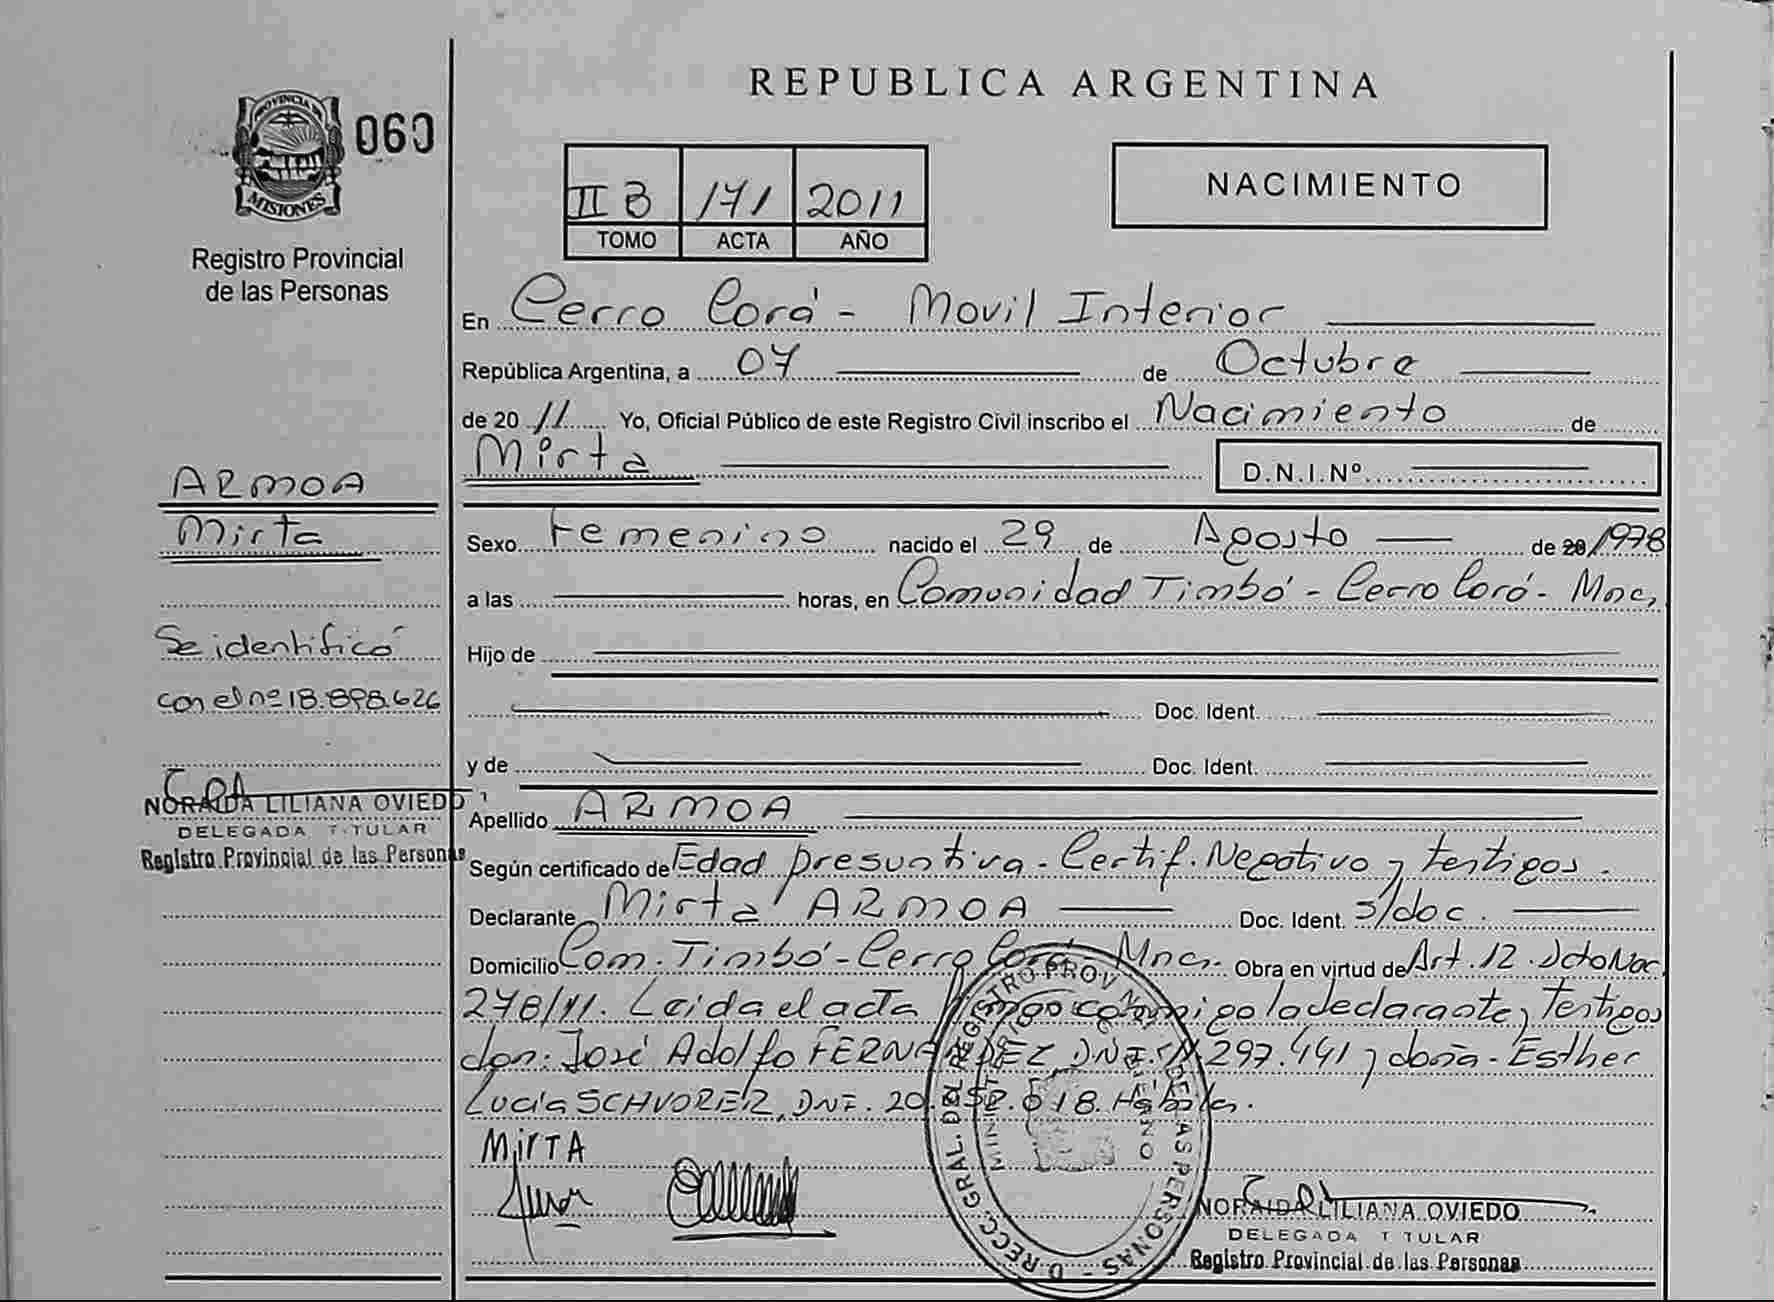 REPUBLICA ARGENTINA
PROVINCIA DE
MISIONES
060
Registro Provincial
de las Personas
II B 171 2011
TOMO ACTA AÑO
NACIMIENTO
En Cerro Corá - Movil Interior
República Argentina, a 07 de Octubre
de 2011 Yo, Oficial Público de este Registro Civil inscribo el Nacimiento de
Mirta D.N.I.Nº
ARMOA
Mirta
Sexo Femenino nacido el 29 de Agosto de 20 1978
a las horas, en Comunidad Timbó - Cerro Corá - Mnes,
Se identificó
con el nº 18.898.626
Hijo de
Doc. Ident.
y de Doc. Ident.
NORAIDA LILIANA OVIEDO
DELEGADA TITULAR
Registro Provincial de las Personas
Apellido ARMOA
Según certificado de Edad presuntiva - Certif. Negativo y testigos.
Declarante Mirta ARMOA Doc. Ident. s/doc.
Domicilio Com. Timbó - Cerro Corá - Mnes. Obra en virtud de Art. 12. Dcto Nac.
278/11. Leida el acta firman conmigo la declarante y testigos
don: José Adolfo FERNANDEZ DNI. 297.441 y doña - Esther
Lucía SCHVORER, DNI. 20. 018. Hábiles.
MirTA
D RECC. GRAL. DEL REGISTRO PROV DE LAS PERSONAS
NORAIDA LILIANA OVIEDO
DELEGADA TITULAR
Registro Provincial de las Personas